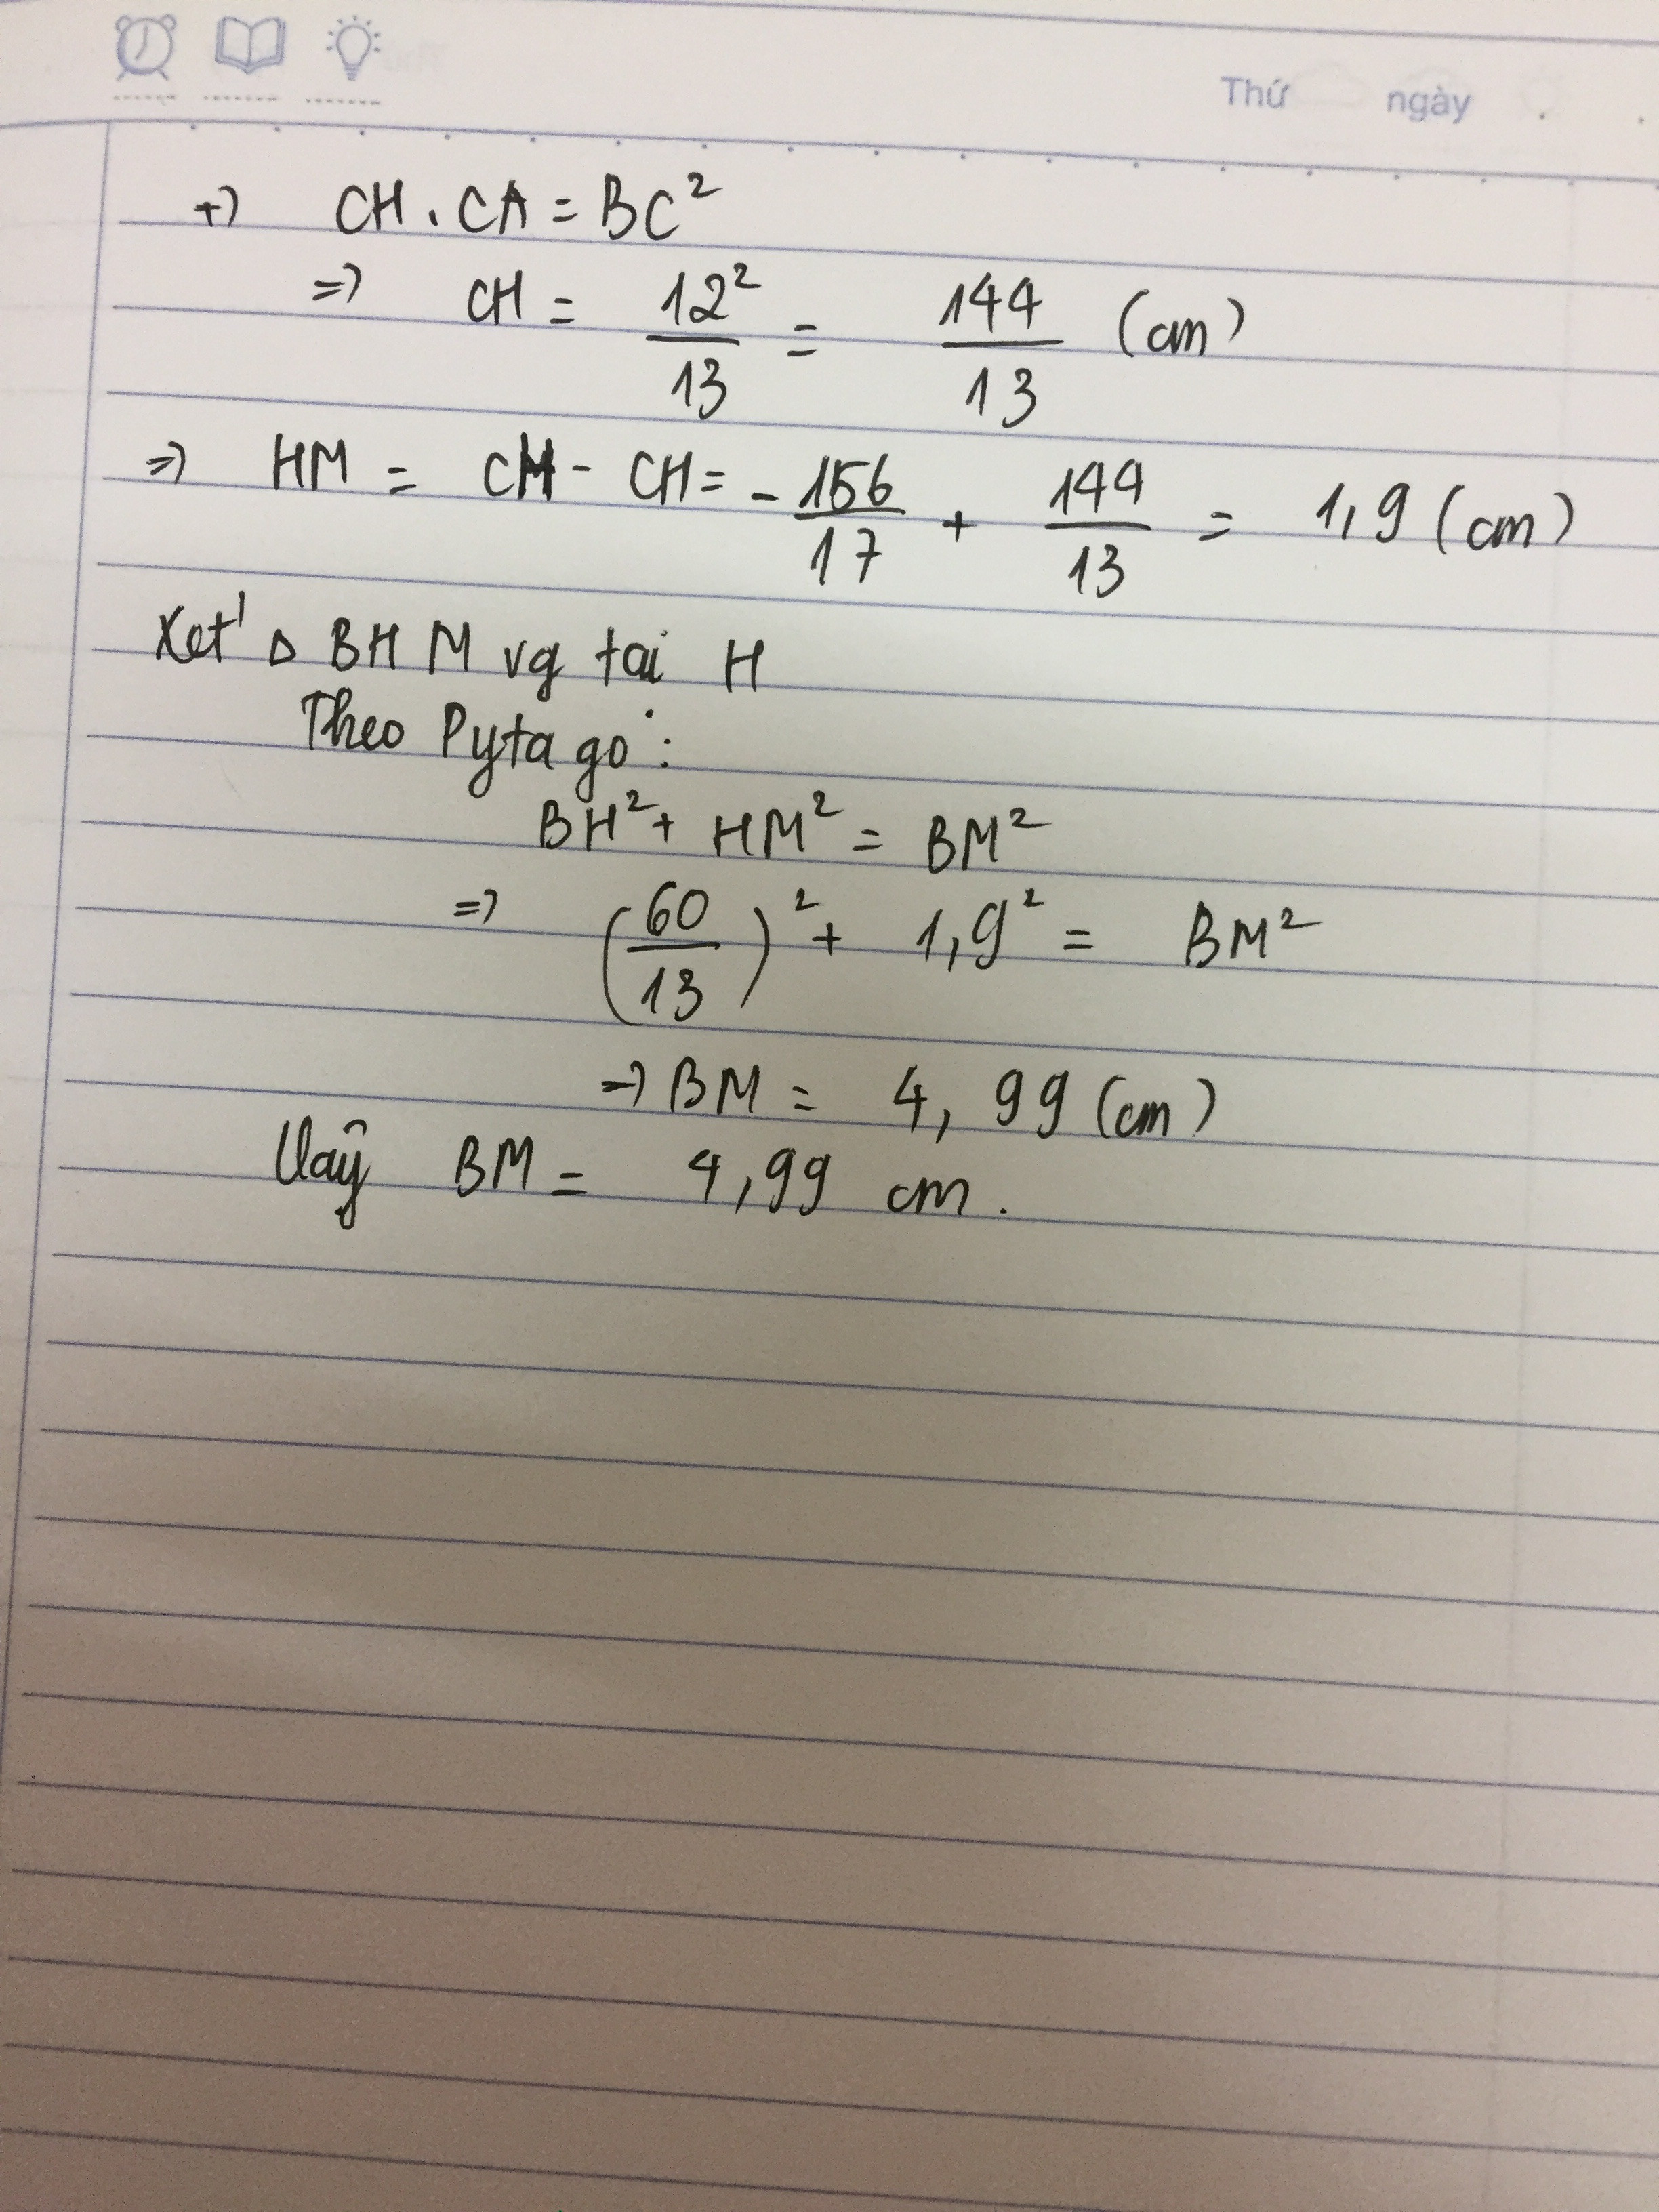 Thứ ngày
+) CH . CA = BC²
=) CH = 12²/13 = 144/13 (cm)
=) HM = CM - CH = - 156/17 + 144/13 = 1,9 (cm)
Xét Δ BHM vg tại H
Theo Pytago:
BH² + HM² = BM²
=) (60/13)² + 1,9² = BM²
=) BM = 4,99 (cm)
Vậy BM = 4,99 cm.